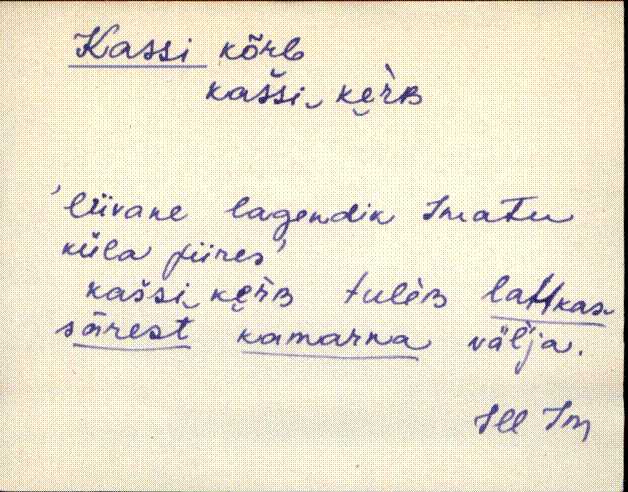 Kassi kõrb
kašši ke̮rʙ
'liivane lagendik Imatu
küla piires'
kašši ke̮rʙ tulèʙ lattkas
sārest kamarna välja.
Ill Im